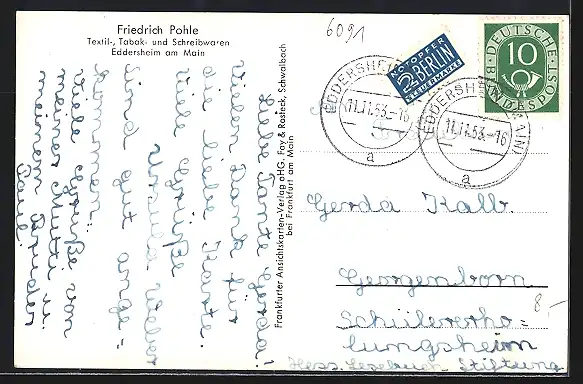 Friedrich Pohle
Textil-, Tabak- und Schreibwaren
Eddersheim am Main
6091
NOTOPFER
2 BERLIN
STEUERMARKE
DEUTSCHE
BUNDESPOST
10
EDDERSHEIM
11.11.53.-16
a
EDDERSHEIM (MAIN)
11.11.53.-16
a
Liebe Tante Gerda!
Vielen Dank für
die liebe Karte.
Viele Grüße
Ursula Weber
Sind gut ange=
kommen.
Viele Grüße von
meiner Mutti u.
meinem Bruder
Paul
Frankfurter Ansichtskarten-Verlag oHG. Fay & Rasteck, Schwalbach
bei Frankfurt am Main
Gerda Kalb.
Georgenborn
Schülererho=
lungsheim
Hess. Lesebuch Stiftung
8.-